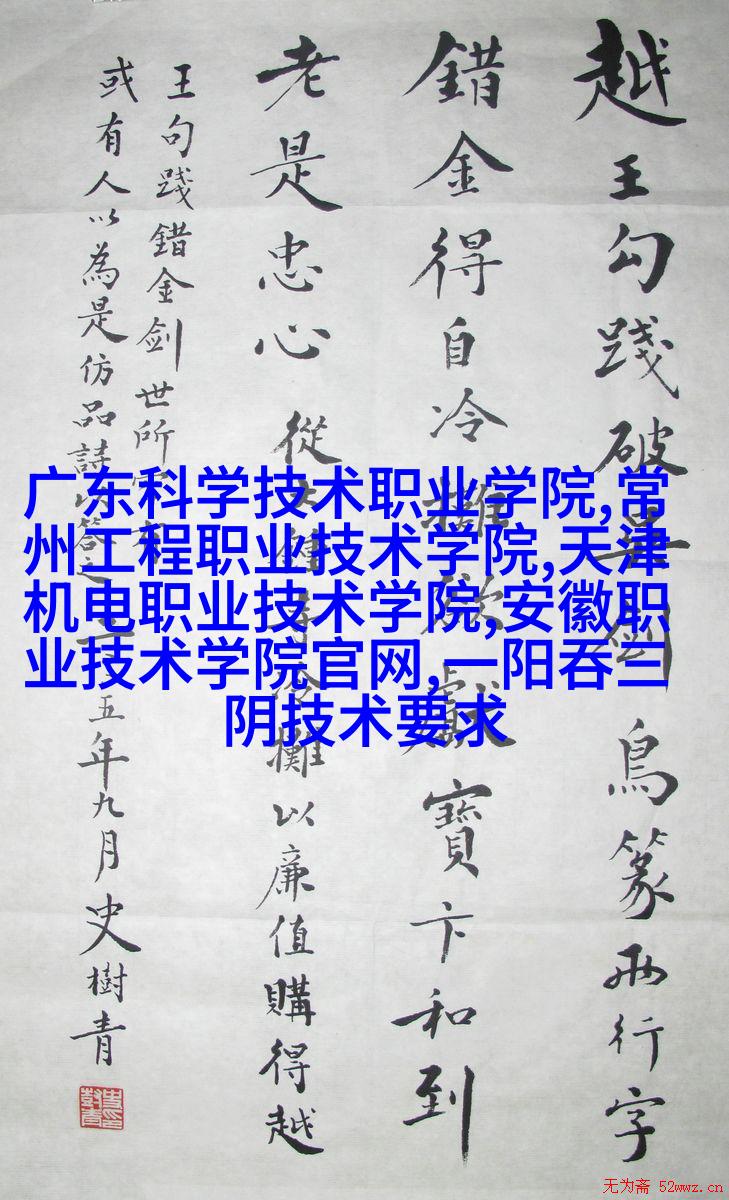 越王勾踐破吴剑鳥篆兩行字
錯金得自冷攤欲獻寶卞和到
老是忠心
從大鐘寺冷攤以廉值購得越
王句踐錯金剑世所
或有人以為是仿品詩以答之
五年九月史樹青
广东科学技术职业学院,常
州工程职业技术学院,天津
机电职业技术学院,安徽职
业技术学院官网,一阳吞三
阴技术要求
无为斋 52wwz.cn